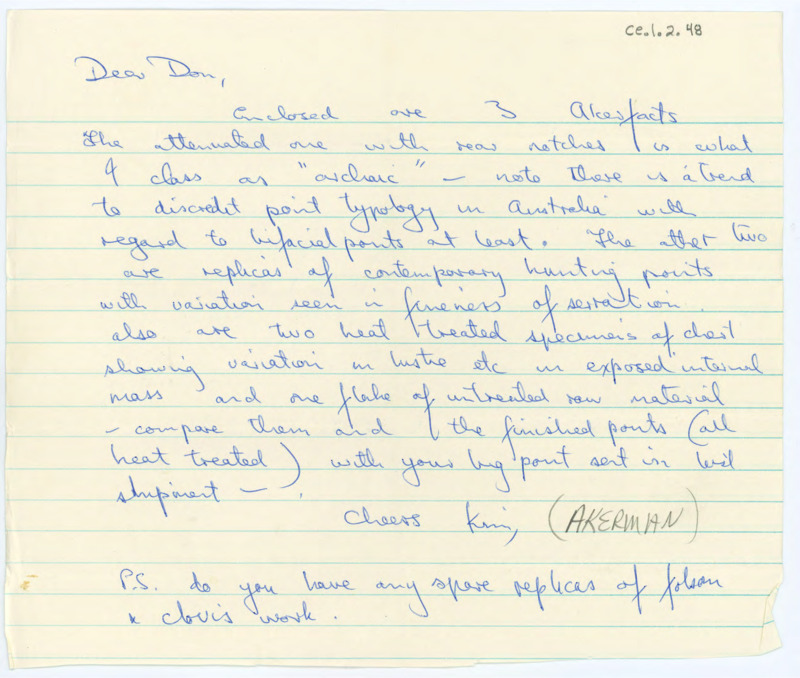 CE.1.2.48
Dear Don,
Enclosed are 3 Akerfacts
The attenuated one with rear notches is what
I class as "archaic" – note there is a trend
to discredit point typology in Australia with
regard to bifacial points at least. The other two
are replicas of contemporary hunting points
with variation seen in fineness of serration.
also are two heat treated specimens of chert
showing variation in lustre etc in exposed internal
mass and one flake of untreated raw material
– compare them and the finished points (all
heat treated) with your big point sent in
shipment – .
Cheers Kim, (AKERMAN)
P.S. do you have any spare replicas of folsom
& clovis work.